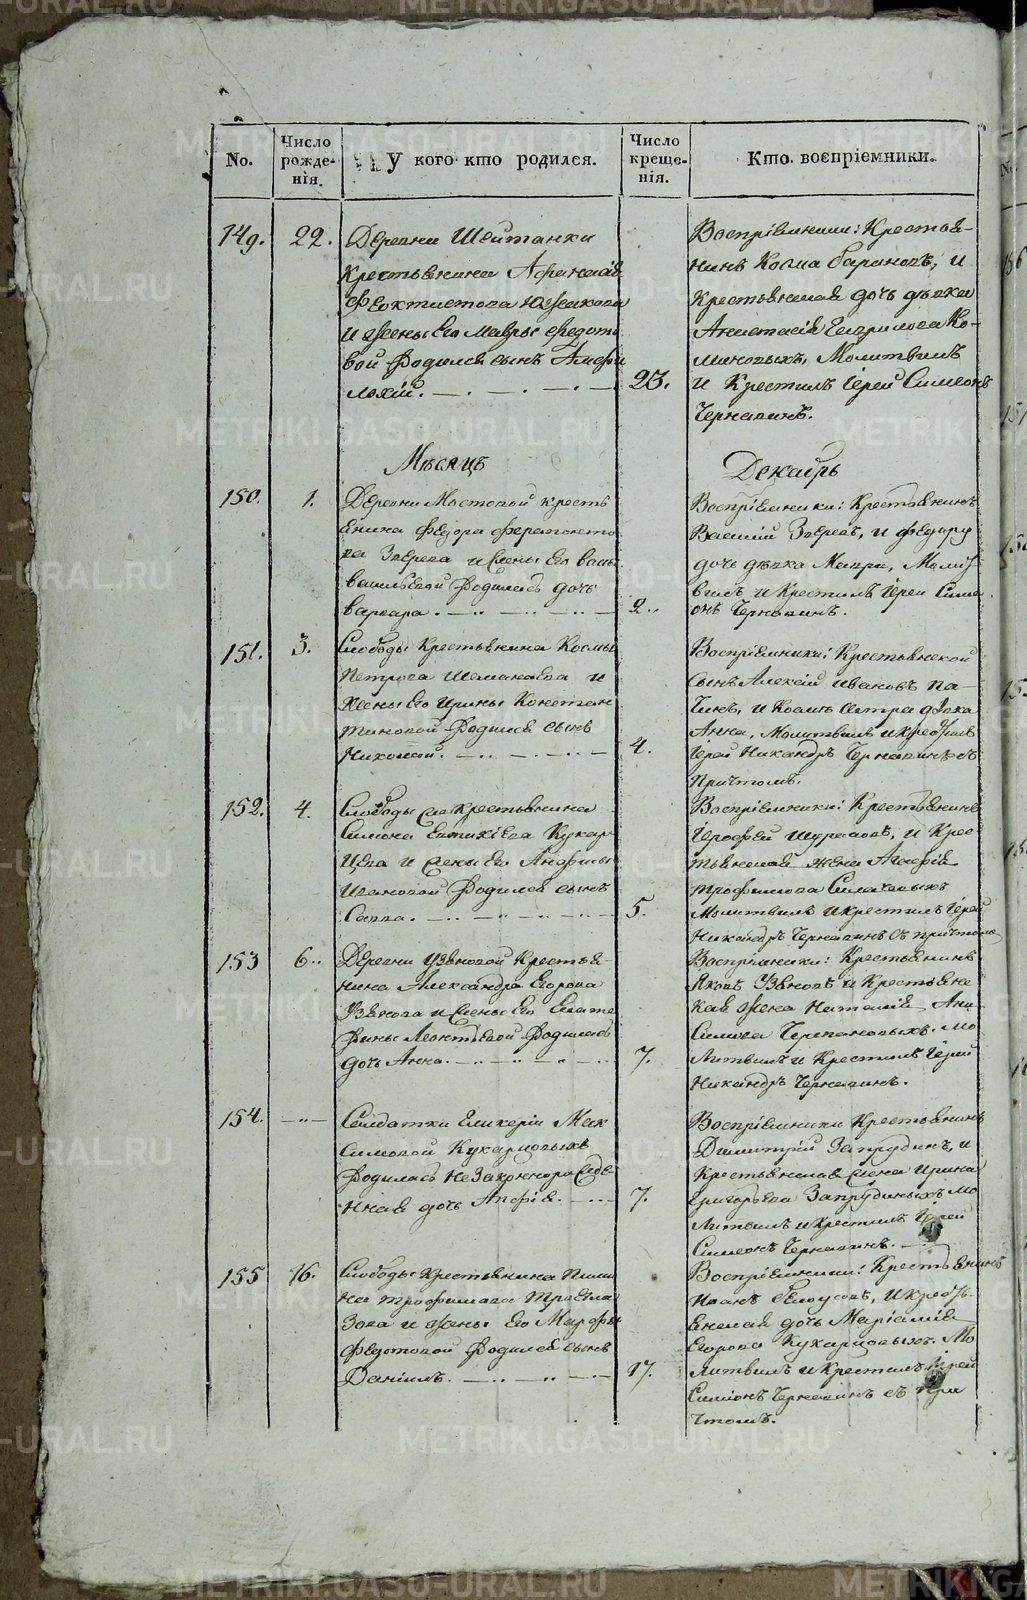 No.
Число рожде- нія.
У кого кто родился.
Число креще- нія.
Кто воспріемники.
149. 22.
Деревни Шейтанки
крестьянина Афанасія
Фектистова
и жены его Мавры Федото
вой родился сынъ Амфи
лохій.
23.
Воспріемники: Крестья-
нинъ Косма Барановъ, и
крестьянская дочь дѣвка
Анастасія Гаврилова Ко-
миновыхъ, Молитвилъ
и Крестилъ Іерей Симеонъ
Чернавинъ.
Мѣсяцъ
Декабрь
150. 1.
Деревни Мостовой кресть
янина Федора Ферапонто
ва Зверева и жены его
родилась дочь
Варвара.
2.
Воспріемники: Крестьянинъ
Василій Зверевъ, и Федору
дочь дѣвка Мавра, Молит
вилъ и Крестилъ Іерей Симе
онъ Чернавинъ.
151. 3.
Слободы Крестьянина Космы
Петрова Шаманаева и
жены его Ирины Констан
тиновой родился сынъ
Николай.
4.
Воспріемники: Крестьянской
сынъ Алексій Ивановъ Па-
чинъ, и Космы сестра дѣвка
Анна, Молитвилъ и крестилъ
Іерей Никандръ Чернавинъ съ
причтомъ.
152. 4.
Слободы сея крестьянина
Симона Евтихіева Кукар
цева и жены его Анфисы
Ивановой родился сынъ
Савва.
5.
Воспріемники: Крестьянинъ
Іерофей Шурановъ, и Крес
тьянская жена Агафія
Трофимова
Молитвилъ и крестилъ Іерей
Никандръ Чернавинъ съ причтомъ
153 6.
Деревни Узяновой Крестья-
нина Александра Егорова
Узянова и жены его Екате
рины Леонтьевой родилась
дочь Анна.
7.
Воспріемники: Крестьянинъ
Яковъ Узяновъ и Крестьянс
кая жена Наталія Ани
симова Черпановыхъ. Мо
литвилъ и Крестилъ Іерей
Никандръ Чернавинъ.
154.
Солдатки Гликеріи Мак
симовой Кукарцовыхъ
родилась незаконнорожде
нная дочь Анфія.
7.
Воспріемники Крестьянинъ
Димитрій Запрудинъ, и
Крестьянская жена Ирина
Григорьева Запрудиныхъ Мо
литвилъ и крестилъ Іерей
Симеонъ Чернавинъ.
155 16.
Слободы крестьянина Пиме
на Трофимова
и жены его Марфы
Федотовой родился сынъ
Даніилъ.
17.
Воспріемники: Крестьянинъ
Иванъ Белоусовъ, и крест
янская дочь Маріамія
Егорова Кукарцовыхъ. Мо
литвилъ и крестилъ Іерей
Симіонъ Чернавинъ съ при
чтомъ.